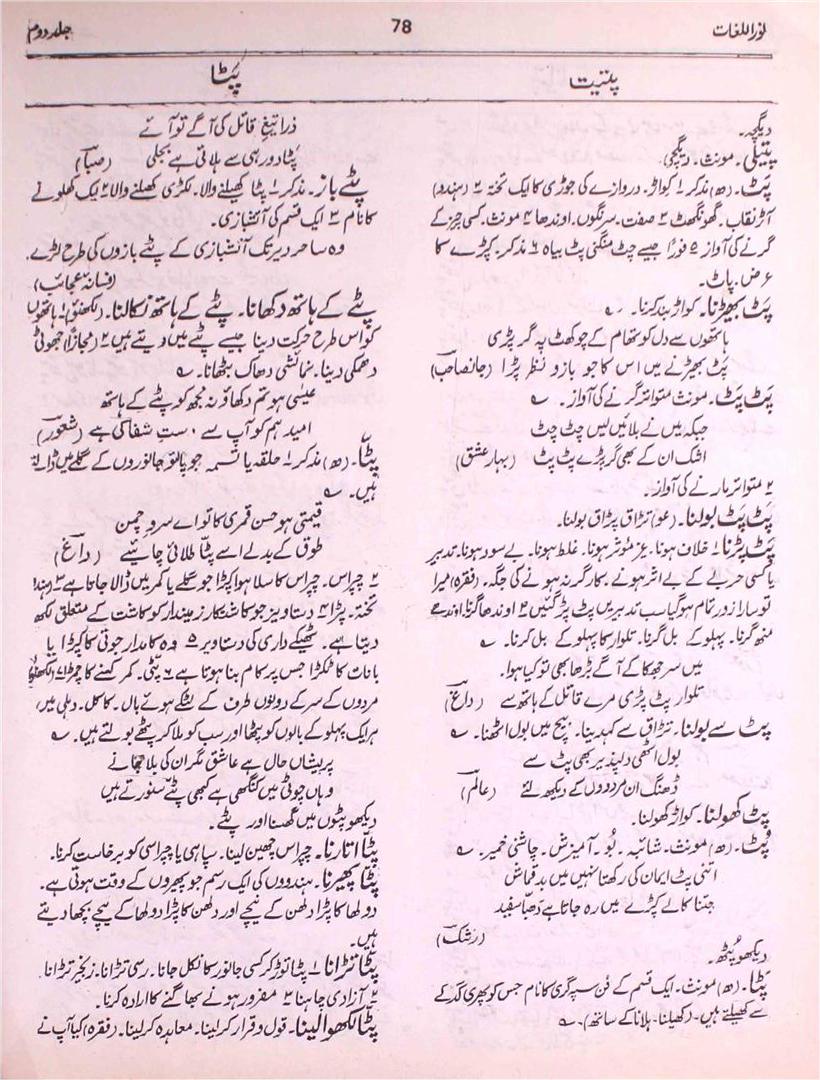 نور اللغات
78
جلد دوم
پتیت
پَٹا
دیگچہ۔
پتیلی۔ مونث۔ دیگچی
پَٹ۔ (ھ) مذکر ۱ کواڑ۔ دروازے کی جوڑی کا ایک تختہ ۲ (ہندو)
آڑ نقاب۔ گھونگھٹ ۳ صفت۔ سرنگوں۔ اوندھا ۴ مونث۔ کسی چیز کے
گرنے کی آواز ۵ فوراً جیسے چٹ منگنی پٹ بیاہ ۶ مذکر۔ کپڑے کا
عرض۔ پاٹ۔
پَٹ بھیڑنا۔ کواڑ بند کرنا۔ ؎
ہاتھوں سے دل کو تھام کے چوکھٹ پہ گر پڑی
پَٹ بھیڑنے میں اس کا جو بازو نظر پڑا (جانصاحب)
پَٹ پَٹ۔ مونث متواتر گرنے کی آواز۔ ؎
جبکہ میں نے بلائیں لیں چٹ چٹ
اشک ان کے بھی گر پڑے پٹ پٹ (بہار عشق)
۲ متواتر مارنے کی آواز۔
پَٹ پَٹ بولنا۔ (عو) تڑاق پڑاق بولنا۔
پَٹ پڑنا ۱ خلاف ہونا۔ غیر مؤثر ہونا۔ غلط ہونا۔ بے سود ہونا۔ تدبیر
یا کسی حربے کے بے اثر ہونے، کارگر نہ ہونے کی جگہ۔ (فقرہ) میرا
تو سارا زور تمام ہو گیا سب تدبیریں پٹ پڑ گئیں ۲ اوندھا گرنا۔ اوندھے
منھ گرنا۔ پہلو کے بل گرنا۔ تلوار کا پہلو کے بل گرنا۔ ؎
میں سر جھکا کے آگے بڑھا بھی تو کیا ہوا۔
تلوار پٹ پڑی مرے قاتل کے ہاتھ سے (داغ)
پٹ سے بولنا۔ تڑاق سے کہدینا۔ بیچ میں بول اٹھنا۔ ؎
بول اٹھی دلپذیر بھی پٹ سے
ڈھنگ ان مردووں کے دیکھ لئے (عالم)
پٹ کھولنا۔ کواڑ کھولنا۔
پُٹ۔ (ھ) مونث۔ شائبہ۔ بُو۔ آمیزش۔ چاشنی خمیر۔ ؎
اتنی پٹ ایمان کی رکھتا نہیں میں بد قماش
جتنا کالے کپڑے میں رہ جاتا ہے دھبا سفید
(رشک)
دیکھو پُٹھ۔
پَٹا۔ (ھ) مونث۔ ایک قسم کے فن سپہ گری کا نام جس کو چھری گدکے
سے کھیلتے ہیں۔ (کھیلنا۔ ہلانا کے ساتھ)۔ ؎
ذرا تیغِ قاتل کی آگے تو آئے
پَٹا دور ہی سے ہلاتی ہے بجلی (صبا)
پٹے باز۔ مذکر ۱ پٹا کھیلنے والا۔ لکڑی کھیلنے والا ۲ ایک کھلونے
کا نام ۳ ایک قسم کی آتشبازی۔
وہ ساحر دیر تک آتشبازی کے پٹے بازوں کی طرح لڑے۔
(فسانۂ عجائب)
پٹے کے ہاتھ دکھانا۔ پٹے کے ہاتھ نکالنا۔ (لکھنؤ) ۱ ہاتھوں
کو اس طرح حرکت دینا جیسے پٹے میں دیتے ہیں ۲ (مجازاً) جھوٹی
دھمکی دینا۔ نمائشی دھاک بٹھانا۔ ؎
عیسٰی ہو تم دکھاؤ نہ مجھ کو پٹے کے ہاتھ
امید ہم کو آپ سے دستِ شفا کی ہے (شعور)
پٹّا۔ (ھ) مذکر ۱ حلقہ یا تسمہ جو پالتو جانوروں کے گلے میں ڈالتے
ہیں۔ ؎
قیمتی ہو حسن قمری کا تو اے سرو چمن
طوق کے بدلے اسے پٹّا طلائی چاہئیے (داغ)
۲ چپراس۔ چپراس کا سلا ہوا کپڑا جو گلے یا کمر میں ڈالا جاتا ہے ۳ (ہندو)
تختہ۔ پٹرا ۴ دستاویز جو کاشتکار زمیندار کو کاشت کے متعلق لکھ
دیتا ہے۔ ٹھیکے داری کی دستاویز ۵ وہ کامدار جوتی کا کپڑا یا
بانات کا ٹکڑا جس پر کام بنا ہوتا ہے ۶ پیٹی۔ کمر کسنے کا چمڑا ۷ (لکھنؤ)
مردوں کے سر کے دونوں طرف کے لٹکے ہوئے بال۔ کاکل۔ دہلی میں
ہر ایک پہلو کے بالوں کو پٹھا اور سب کو ملا کر پٹھے بولتے ہیں۔ ؎
پریشاں حال ہے عاشق نگران کی بلا جانے
وہاں چوٹی میں کنگھی ہے کبھی پٹے سنورتے ہیں
دیکھو پٹوں میں گھسنا اور پٹے۔
پٹّا اتارنا۔ چپراس چھین لینا۔ سپاہی یا چپراسی کو برخاست کرنا۔
پٹّا پھیرنا۔ ہندووں کی ایک رسم جو پھیروں کے وقت ہوتی ہے۔
دولھا کا پٹرا دلھن کے نیچے اور دلھن کا پٹرا دولھا کے نیچے بچھا دیتے
ہیں۔
پٹّا تڑانا ۱ پٹا توڑ کر کسی جانور کا نکل جانا۔ رسی تڑانا۔ زنجیر تڑانا۔
۲ آزادی چاہنا ۳ مفرور ہونے بھاگنے کا ارادہ کرنا۔
پٹّا لکھوا لینا۔ قول و قرار کر لینا۔ معاہدہ کر لینا۔ (فقرہ) کیا آپ نے